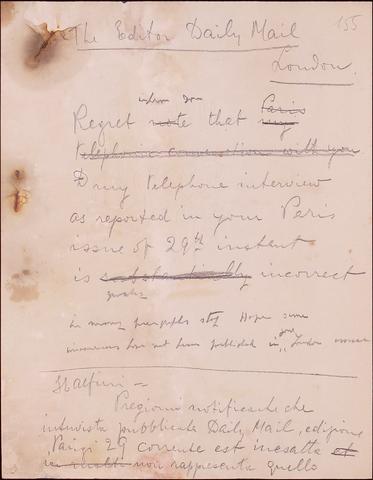 155
The Editor Daily Mail
London
inform you
Regret note that my Paris
telephonic connection with you
D my telephone interview
as reported in your Paris
issue of 29th instant
is substantially incorrect
greatly
in many paragraphs stop Hope same
your
have not been published in London
Italfiui =
Pregiomi notificare che
intervista pubblicata Daily Mail, edizione
Parigi 29 corrente est inesatta et
in molti non rappresenta quello